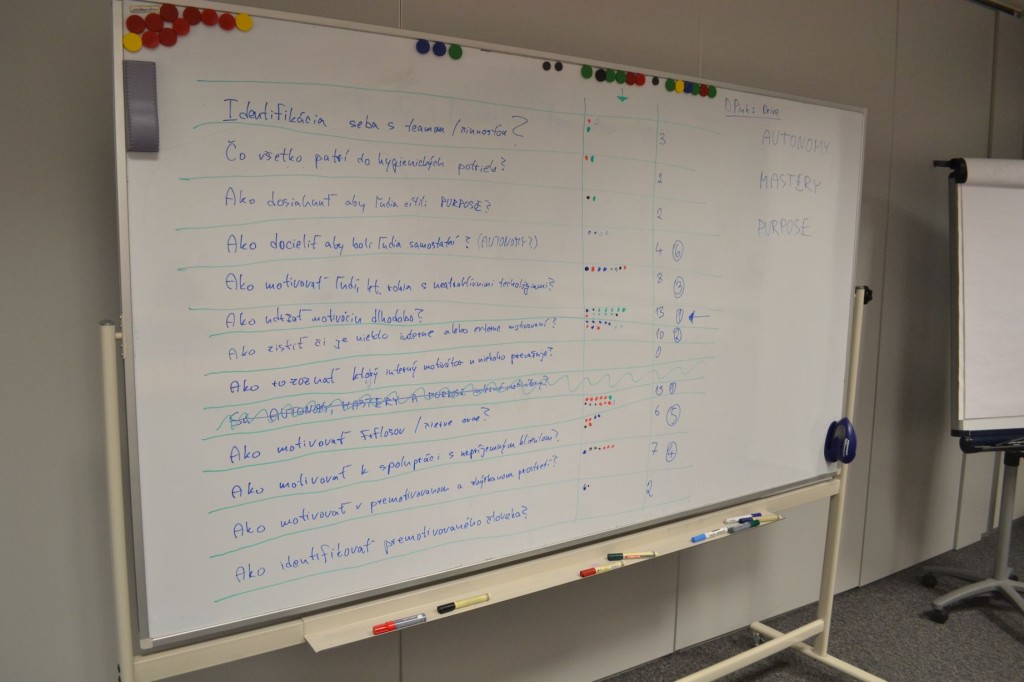 Identifikácia seba s teamom / činnosťou? 3
Čo všetko patrí do hygienických potrieb? 2
Ako dosiahnuť aby ľudia cítili PURPOSE? 2
Ako docieliť aby boli ľudia samostatní? (AUTONOMY?) 4 6
Ako motivovať ľudí, kt. robia s neatraktívnimi technológiami? 8 3
Ako udržať motiváciu dlhodobo? 13 1
Ako zistiť či je niekto interne alebo externe motivovaní? 10 2
Ako rozoznať ktorý interný motivátor u niekoho prevažuje? 0
Sú AUTONOMY, MASTERY A PURPOSE
Ako motivovať / čierne ovce? 13 1
Ako motivovať k spolupráci s nepríjemným klientom? 6 5
Ako motivovať v premotivovanom a prostredí? 7 4
Ako identifikovať premotivovaného človeka? 2
D. Pink: Drive
AUTONOMY
MASTERY
PURPOSE